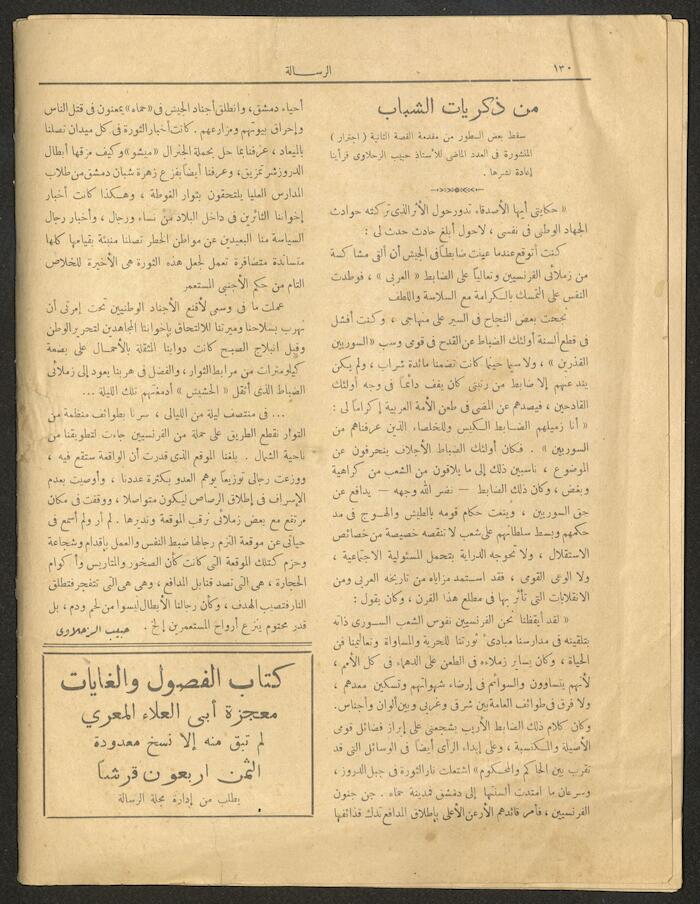 ١٣٠
الرسالة
من ذكريات الشباب
سقط بعض السطور من مقدمة القصة الثانية ( اجترار )
المنشورة في العدد الماضي للأستاذ حبيب الزحلاوي فرأينا
إعادة نشرها .
« حكايتي أيها الأصدقاء تدور حول الأثر الذي تركته حوادث
الجهاد الوطني في نفسي ، لا حول أبلغ حادث حدث لي :
كنت أتوقع عندما عينت ضابطاً في الجيش أن ألقى مشاكسة
من زملائي الفرنسيين وتعالياً على الضابط « العربي » ، فوطدت
النفس على التمسك بالكرامة مع السلاسة واللطف
نجحت بعض النجاح في السير على منهاجي ، وكنت أفشل
في قطع ألسنة أولئك الضباط عن القدح في قومي وسب « السوريين
القذرين » ، ولا سيما حينما كانت تضمنا مائدة شراب ، ولم يكن
يندعنهم إلا ضابط من رتبتي كان يقف دائماً في وجه أولئك
القادحين ، فيصدهم عن المضي في طعن الأمة العربية إكراماً لي :
« أنا زميلهم الضابط الكيس وللخلصاء الذين عرفناهم من
السوريين » . فكان أولئك الضباط الأجلاف ينحرفون عن
الموضوع ، ناسبين ذلك إلى ما يلاقون من الشعب من كراهية
وبغض ، وكان ذلك الضابط — نضر الله وجهه — يدافع عن
حق السوريين ، وينعت حكام قومه بالطيش والهوج في مد
حكمهم وبسط سلطانهم على شعب لا تنقصه خصيصة من خصائص
الاستقلال ، ولا تحوجه الدراية بتحمل المسئولية الاجتماعية ،
ولا الوعي القومي ، فقد استمد مزاياه من تاريخه العربي ومن
الانقلابات التي تأثر بها في مطلع هذا القرن ، وكان يقول :
« لقد أيقظنا نحن الفرنسيين نفوس الشعب السوري ذاته
بتلقينه في مدارسنا مبادئ ثورتنا للحرية والمساواة وتعاليمنا فن
الحياة ، وكان يساير زملاءه في الطعن على الدهماء في كل الأمم ،
لأنهم يتساوون والسوائم في إرضاء شهواتهم وتسكين معدهم ،
ولا فرق في طوائف العامة بين شرقي وغربي وبين ألوان وأجناس.
وكان كلام ذلك الضابط الأريب يشجعني على إبراز فضائل قومي
الأصيلة والمكتسبة ، وعلى إبداء الرأي أيضاً في الوسائل التي قد
تقرب بين الحاكم والمحكوم » اشتعلت نار الثورة في جبل الدروز ،
وسرعان ما امتدت ألسنتها إلى دمشق فمدينة حماه . جن جنون
الفرنسيين ، فأمر قائدهم الأرعن الأعلى بإطلاق المدافع تدك قذائفها
أحياء دمشق، وانطلق أجناد الجيش في «حماه» يمعنون في قتل الناس
وإحراق بيوتهم ومزارعهم . كانت أخبار الثورة في كل ميدان تصلنا
بالميعاد ، عرفنا بما حل بحملة الجنرال «ميشو» وكيف مزقها أبطال
الدروز شر تمزيق، وعرفنا أيضاً بفزع زهرة شبان دمشق من طلاب
المدارس العليا يلتحقون بثوار الغوطة ، وهكذا كانت أخبار
إخواننا الثائرين في داخل البلاد من نساء ورجال ، وأخبار رجال
السياسة منا البعيدين عن مواطن الخطر تصلنا منبئة بقيامها كلها
متساندة متضافرة تعمل لجعل هذه الثورة هي الأخيرة للخلاص
التام من حكم الأجنبي المستعمر
عملت ما في وسعي لأقنع الأجناد الوطنيين تحت إمرتي أن
نهرب بسلاحنا وميرتنا للالتحاق بإخواننا المجاهدين لتحرير الوطن
وقبل انبلاج الصبح كانت دوابنا المثقلة بالأحمال على بضعة
كيلومترات من مرابط الثوار ، والفضل في هربنا يعود إلى زملائي
الضباط الذي أثقل « الحشيش » أدمغتهم تلك الليلة ...
... في منتصف ليلة من الليالي ، سرنا بطوائف منظمة من
الثوار نقطع الطريق على حملة من الفرنسيين جاءت لتطويقنا من
ناحية الشمال . بلغنا الموقع الذي قدرت أن الواقعة ستقع فيه ،
ووزعت رجالي توزيعاً يوهم العدو بكثرة عددنا ، وأوصيت بعدم
الإسراف في إطلاق الرصاص ليكون متواصلا ، ووقفت في مكان
مرتفع مع بعض زملائي نرقب الموقعة وندبرها . لم أر ولم أسمع في
حياتي عن موقعة التزم رجالها ضبط النفس والعمل بإقدام وشجاعة
وحزم كتلك الموقعة التي كانت كأن الصخور والمتاريس وأكوام
الحجارة ، هي التي تصد قنابل المدافع ، وهي هي التي تتفجر فتطلق
النار فتصيب الهدف ، وكأن رجالنا الأبطال ليسوا من لحم ودم ، بل
قدر محتوم ينتزع أرواح المستعمرين إلخ .
حبيب الزحلاوي
كتاب الفصول والغايات
معجزة أبي العلاء المعري
لم تبق منه إلا نسخ معدودة
الثمن اربعون قرشا
يطلب من إدارة مجلة الرسالة